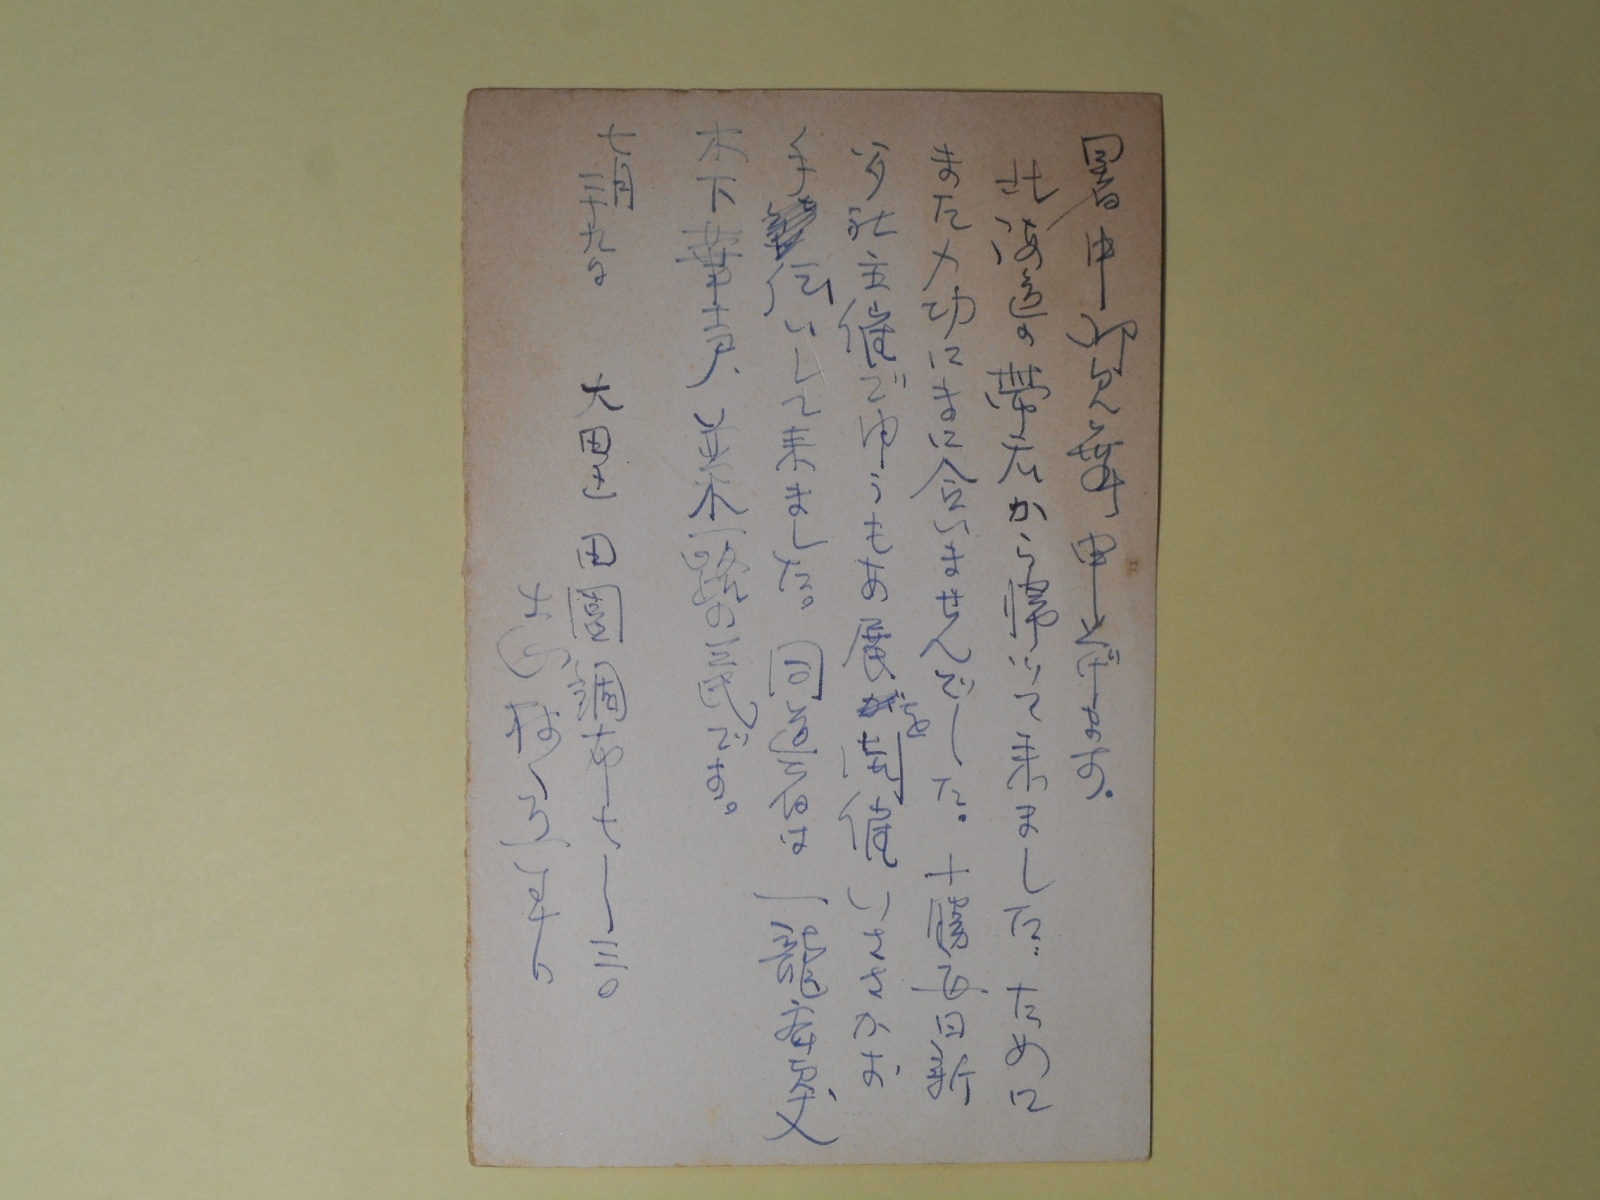 暑中御見舞申上げます。
北海道の帯広から帰って来ました。ために
また 功にまに合いませんでした。十勝毎日新
社主催で ゆうもあ展を開催いささかお
手伝いして来ました。同道者は一龍斎貞丈
木下華声、並木一路の三氏です。
七月二十九日 大田区田園調布七ー三〇